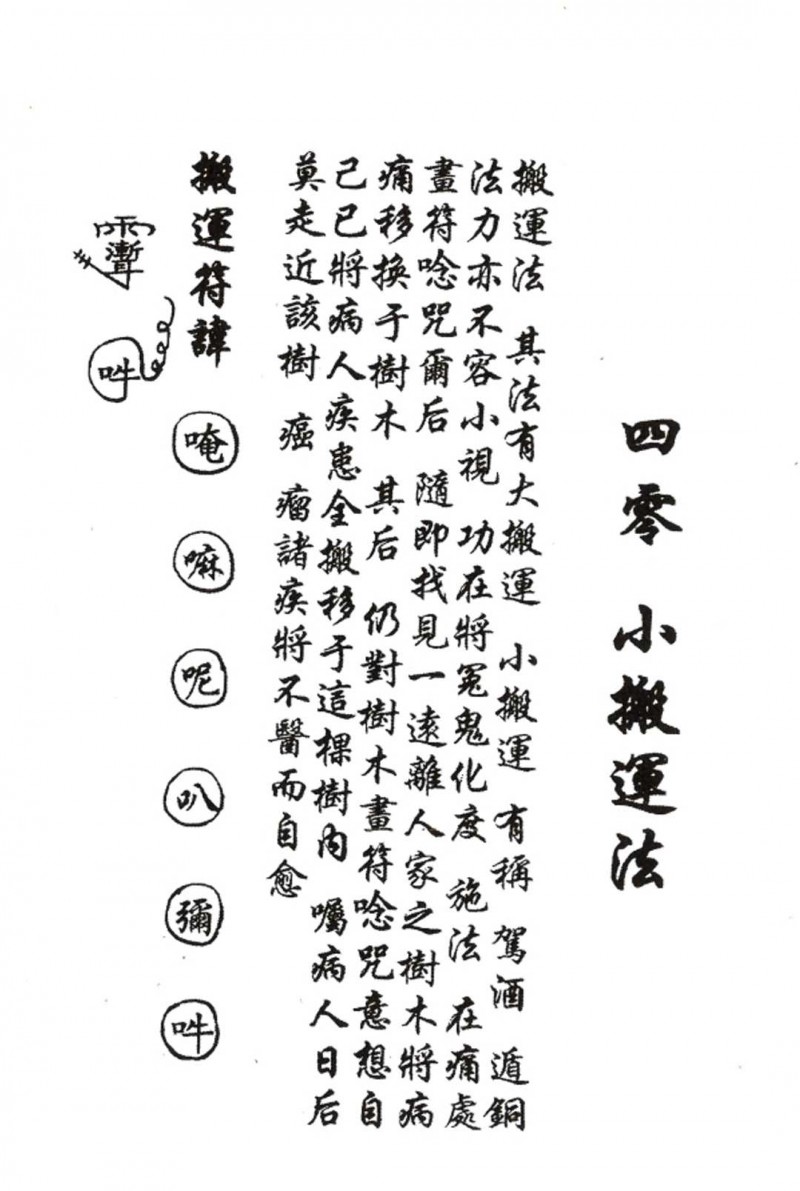 四零 小搬運法
搬運法 其法有大搬運 小搬運 有稱 駕酒 遁銅
法力亦不容小視 功在將冤鬼化度 施法 在痛處
畫符唸咒爾后 隨即找見一遠離人家之樹木將病
痛移換于樹木 其后 仍對樹木畫符唸咒意想自
己已將病人疾患全搬移于這棵樹內 囑病人日后
莫走近該樹 癌 瘤諸疾將不醫而自愈
搬運符諱
唵 嘛 呢 叭 彌 吽
吽